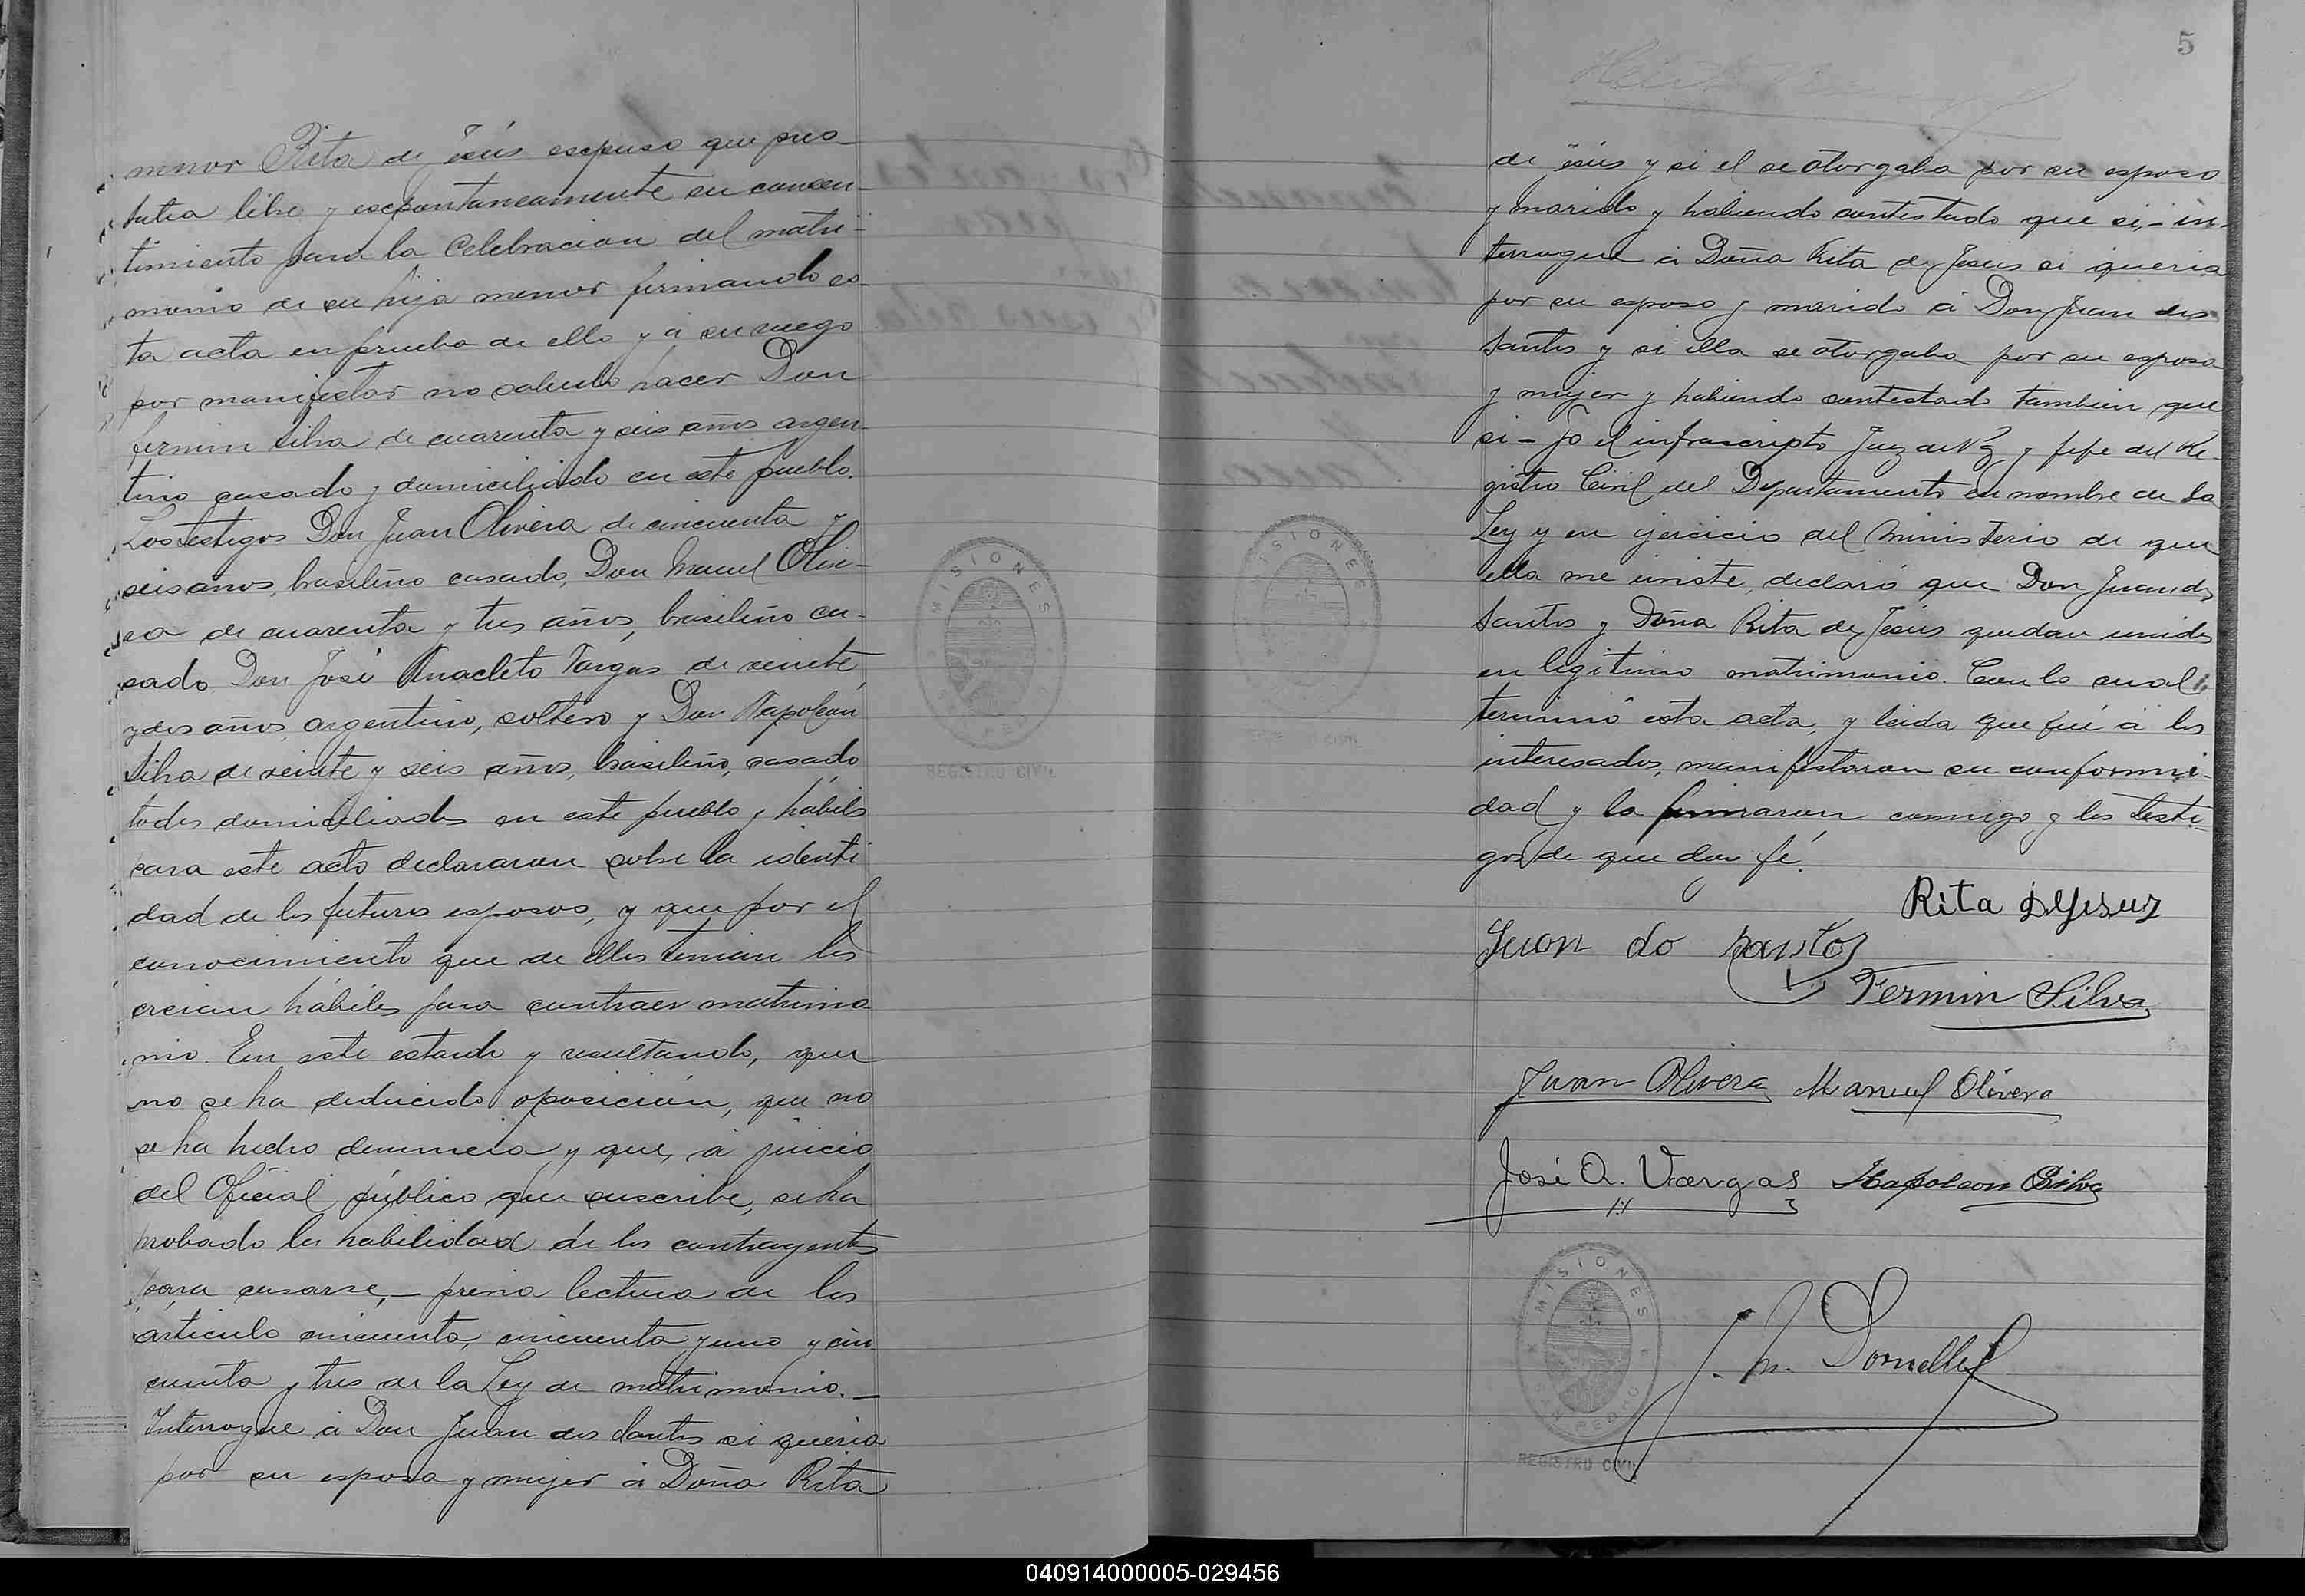 menor Rita de Jesús espuso que pres-
taba libre y espontaneamente su consen-
timiento para la Celebracion del matri-
monio de su hija menor firmando es-
ta acta en prueba de ello y á su ruego
por manifestar no saberlo hacer Don
fermin Silva de cuarenta y seis años argen-
tino casado y domiciliado en este pueblo.
Los testigos Don Juan Olivera de cincuenta y
seis años, brasileño casado, Don Manuel Olive-
ra de cuarenta y tres años, brasileño ca-
sado Don José Anacleto Vargas de veinte
y dos años, argentino, soltero y Don Napoleón
Silva de veinte y seis años, brasileño, casado
todos domiciliados en este pueblo y hábiles
para este acto declararon sobre la identi
dad de los futuros esposos, y que por el
conocimiento que de ellos tenian los
creian hábiles para contraer matrimo-
nio. En este estado y resultando, que
no se ha deducido oposición, que no
se ha hecho denuncia y que, á juicio
del Oficial público que suscribe, se ha
probado la habilidad de los contrayentes
para casarse, — previa lectura de los
artículo cincuenta, cincuenta y uno y cin-
cuenta y tres de la Ley de matrimonio. —
Interrogue á Don Juan dos Santos si queria
por su esposa y mujer á Doña Rita
MISIONES
REGISTRO CIVIL
5
de Jesús y si el se otorgaba por su esposo
y marido y habiendo contestado que si, — in-
terrogué á Doña Rita de Jesús si queria
por su esposo y marido á Don Juan dos
Santos y si ella se otorgaba por su esposa
y mujer y habiendo contestado tambien que
si — Yo el infrascripto Juez de Paz y Jefe del Re-
gistro Civil del Departamento en nombre de la
Ley y en ejercicio del Ministerio de que
ella me inviste, declaró que Don Juan dos
Santos y Doña Rita de Jesús quedan unidos
en legitimo matrimonio. Con lo cual
terminó esta acta, y leida que fué á los
interesados, manifestaron su conformi-
dad y la firmaron conmigo y los testi-
gos de que doy fé.
MISIONES
Rita deJesus
Juan do Santos
Fermin Silva
Juan Olivera Manuel Olivera
José A. Vargas Napoleon Silva
MISIONES
SAN PEDRO
REGISTRO CIVIL
040914000005-029456